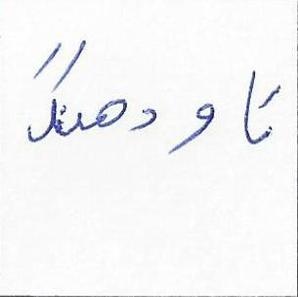 ناو دهنگ